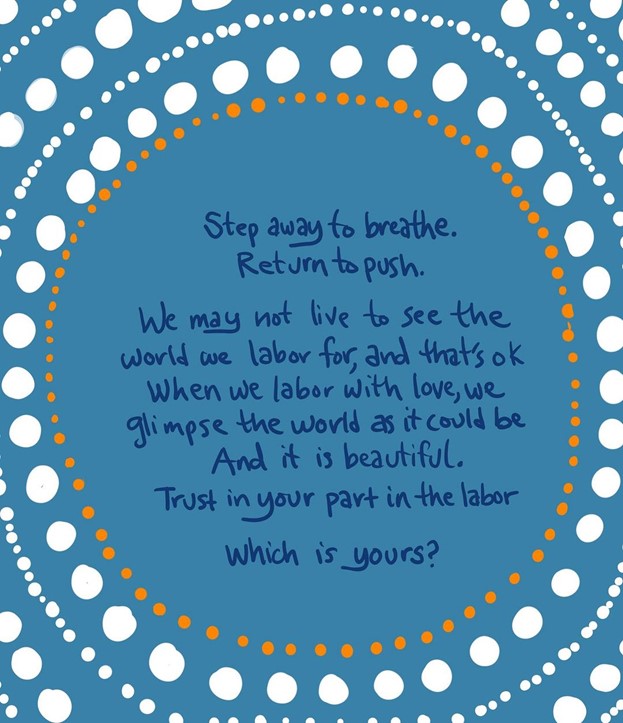 Step away to breathe.
Return to push.
We may not live to see the
world we labor for, and that's ok
When we labor with love, we
glimpse the world as it could be
And it is beautiful.
Trust in your part in the labor
Which is yours?